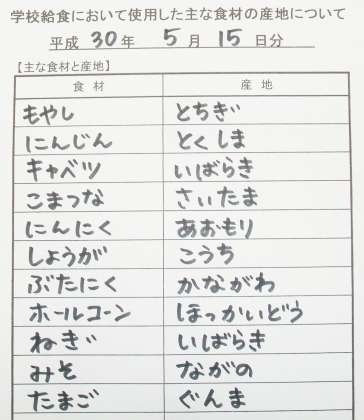 学校給食において使用した主な食材の産地について
平成 30年 5月 15日分
【主な食材と産地】
食材 産地
もやし とちぎ
にんじん とくしま
キャベツ いばらき
こまつな さいたま
にんにく あおもり
しょうが こうち
ぶたにく かながわ
ホールコーン ほっかいどう
ねぎ いばらき
みそ ながの
たまご ぐんま